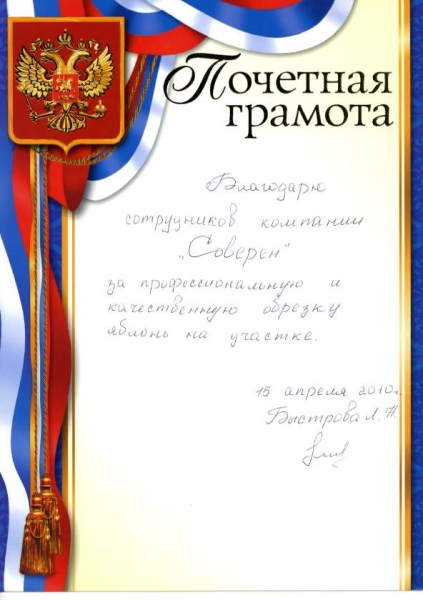 Почетная
грамота
Благодарю
сотрудников компании
„Соверен"
за профессиональную и
качественную обрезку
яблонь на участке.
15 апреля 2010г.
Быстрова Л.Н.